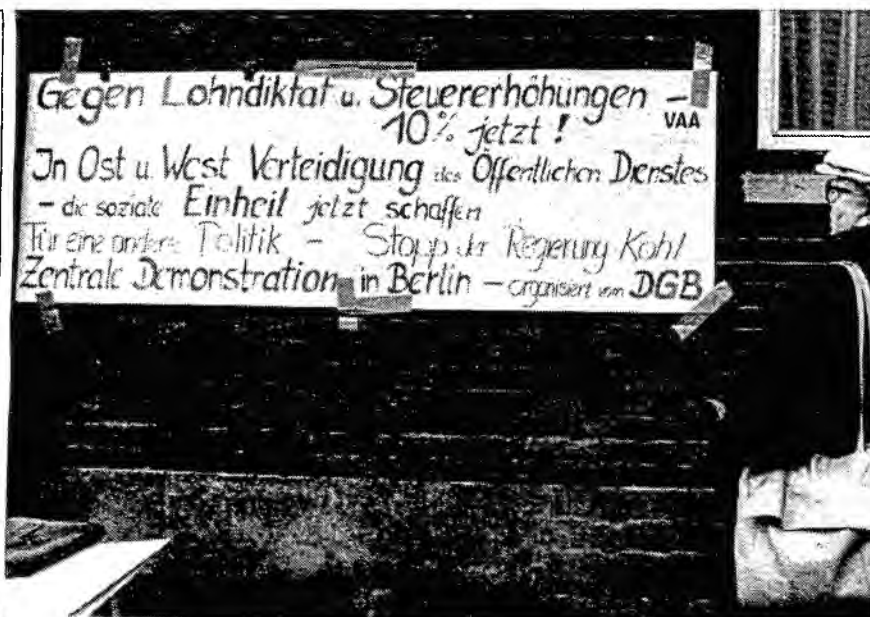 Gegen Lohndiktat u. Steuererhöhungen –
10% jetzt !
VAA
In Ost u. West Verteidigung des Öffentlichen Dienstes
– die soziale Einheit jetzt schaffen
Für eine andere Politik – Stopp der Regierung Kohl
Zentrale Demonstration in Berlin – organisiert vom DGB